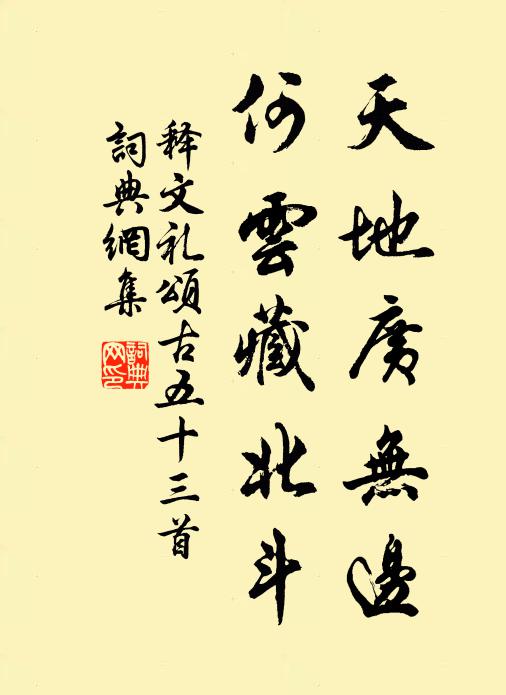 天地廣無邊
何雲藏北斗
释文礼頌古五十三首
詞典網集
詞典網印